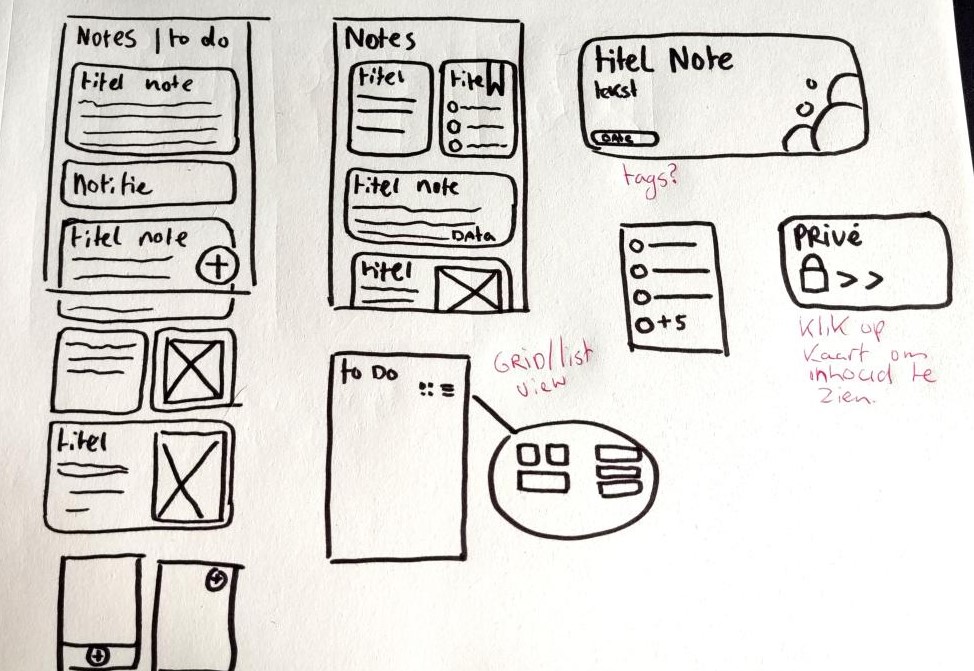 Notes | to do
titel note
Notitie
titel note
titel
Notes
titel
titel
titel note
DAtA
titel
to Do
GRID/list
view
titel Note
tekst
DAtA
tags?
+5
PRIVÉ
>>
Klik op
kaart om
inhoud te
zien.